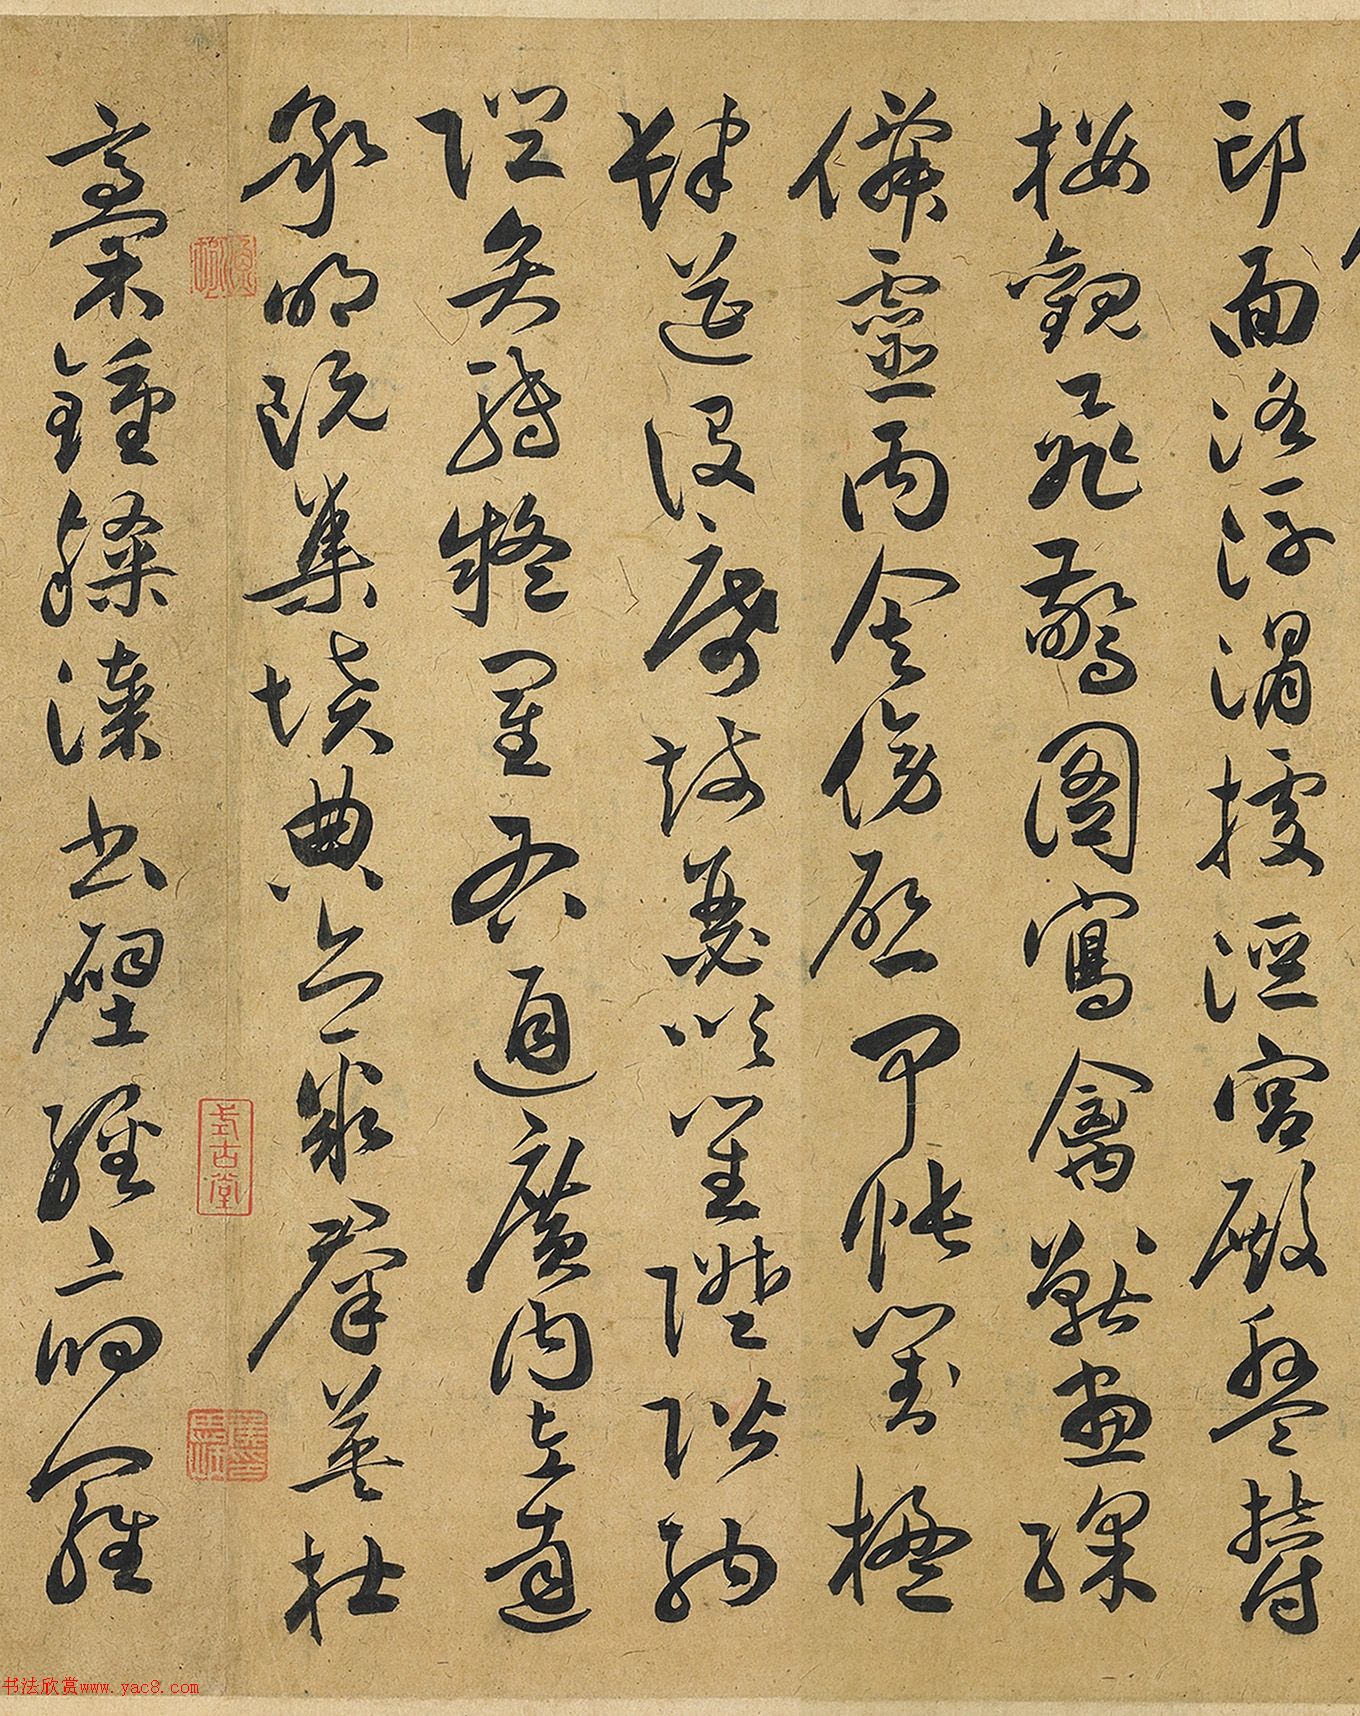 邙面洛浮渭據涇宮殿盤鬱
樓觀飛驚圖寫禽獸畫綵
僊靈丙舍傍啓甲帳對楹
肆筵設席鼓瑟吹笙陞階納
陛弁轉疑星右通廣內左達
承明既集墳典亦聚群英杜
稾鍾隸漆書壁經府羅
式古堂
书法欣赏www.yac8.com